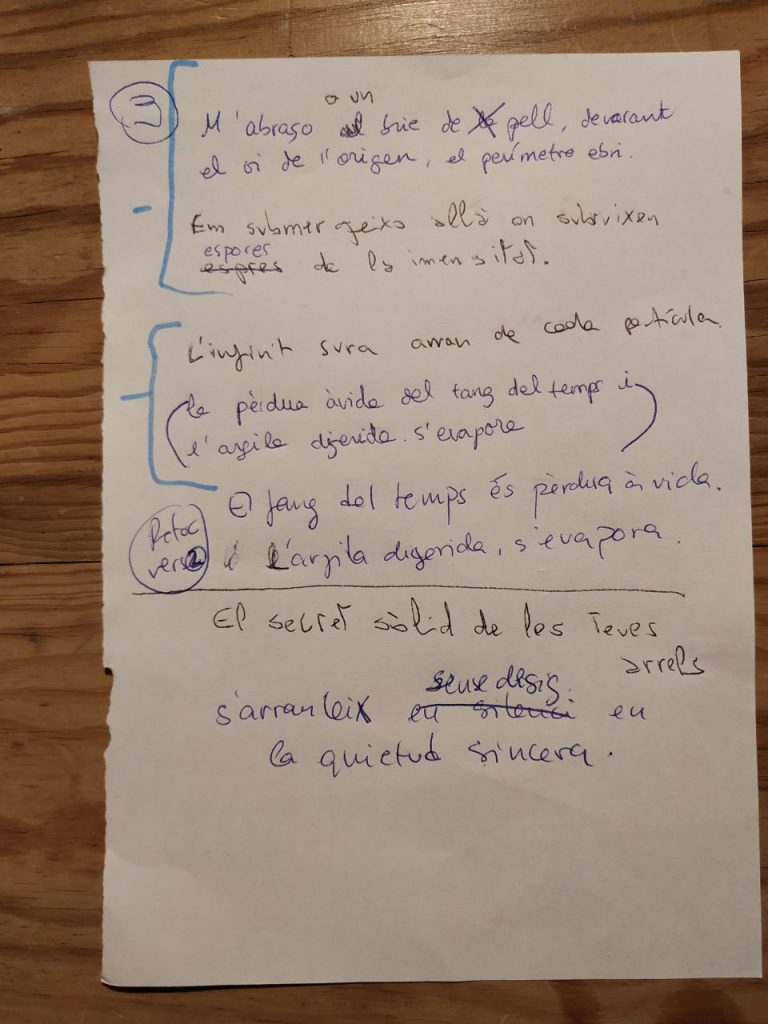 3
a un
M'abraço al bric de la pell, devorant
el vi de l'origen, el perímetre ebri.
Em submergeixo allà on subsuixen
espores
espres de la imensitat.
L'infinit sura arran de cada partícula.
la pèrdua àvida del fang del temps i
l'argila digerida s'evapora
El fang del temps és pèrdua àvida.
Retoc
vers 2
i l'argila digerida, s'evapora.
El secret sòlid de les teves
arrels
sense desig
s'arranleix en silenci en
la quietud sincera.